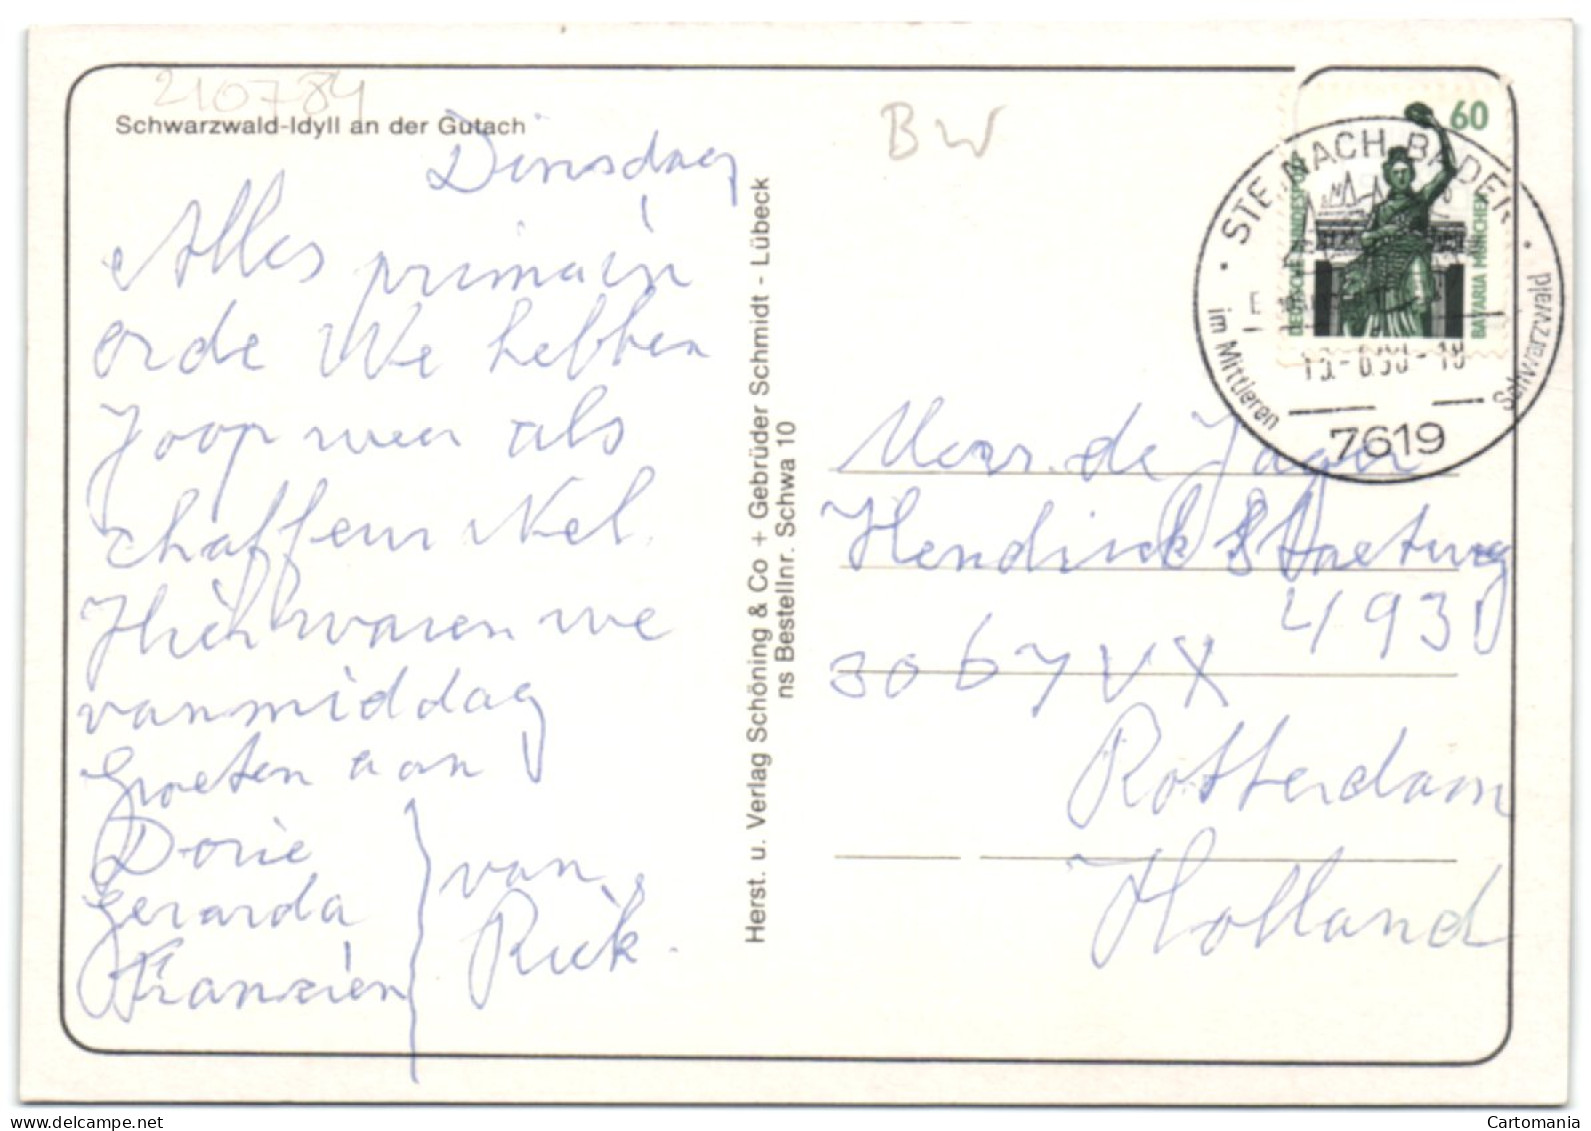 210784
Schwarzwald-Idyll an der Gutach
Dinsdag
Alles prima in
orde We hebben
Joop weer als
chaffeur Nel.
Hier waren we
vanmiddag
Groeten aan
Dorie
Gerarda
Franzien
van
Riek.
Herst. u. Verlag Schöning & Co + Gebrüder Schmidt - Lübeck
ns Bestellnr. Schwa 10
BW
60
DEUTSCHE BUNDESPOST
BAVARIA MÜNCHEN
STEINACH, BADEN
im Mittleren
Schwarzwald
7619
Mevr. de Jager
Hendrick
493
3067VX
Rotterdam
Holland
Cartomania